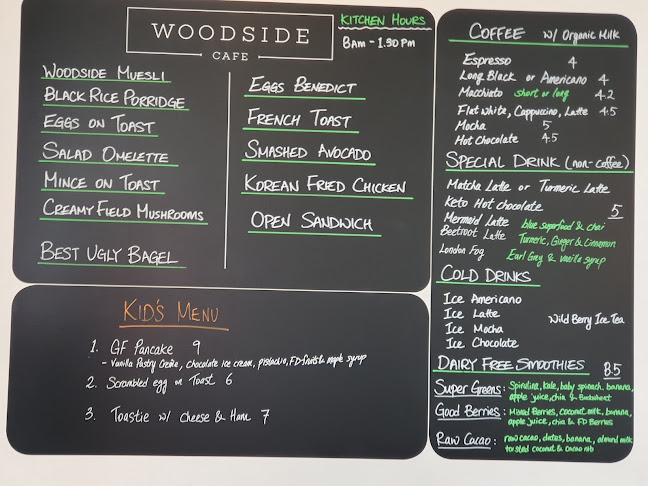 WOODSIDE
CAFE
KITCHEN HOURS
8am - 1.50 Pm
WOODSIDE MUESLI
BLACK RICE PORRIDGE
EGGS ON TOAST
SALAD OMELETTE
MINCE ON TOAST
CREAMY FIELD MUSHROOMS
BEST UGLY BAGEL
EGGS BENEDICT
FRENCH TOAST
SMASHED AVOCADO
KOREAN FRIED CHICKEN
OPEN SANDWICH
KID'S MENU
1. GF Pancake 9
- Vanilla Pastry Creme, chocolate ice cream, pistachio, FD fruits & maple syrup
2. Scrambled egg on Toast 6
3. Toastie w/ Cheese & Ham 7
COFFEE w/ Organic Milk
Espresso 4
Long Black or Americano 4
Macchiato short or long 4.2
Flat White, Cappuccino, Latte 4.5
Mocha 5
Hot Chocolate 4.5
SPECIAL DRINK (non-coffee)
Matcha Latte or Turmeric Latte
Keto Hot chocolate 5
Mermaid Latte blue superfood & chai
Beetroot Latte Turmeric, Ginger & Cinnamon
London Fog Earl Grey & vanilla syrup
COLD DRINKS
Ice Americano
Ice Latte
Ice Mocha
Ice Chocolate
Wild Berry Ice Tea
DAIRY FREE SMOOTHIES 8.5
Super Greens: Spirulina, kale, baby spinach, banana,
apple juice, chia & Buckwheat
Good Berries: Mixed Berries, coconut milk, banana,
apple juice, chia & FD Berries
Raw Cacao: raw cacao, dates, banana, almond milk
toasted coconut & cacao nib